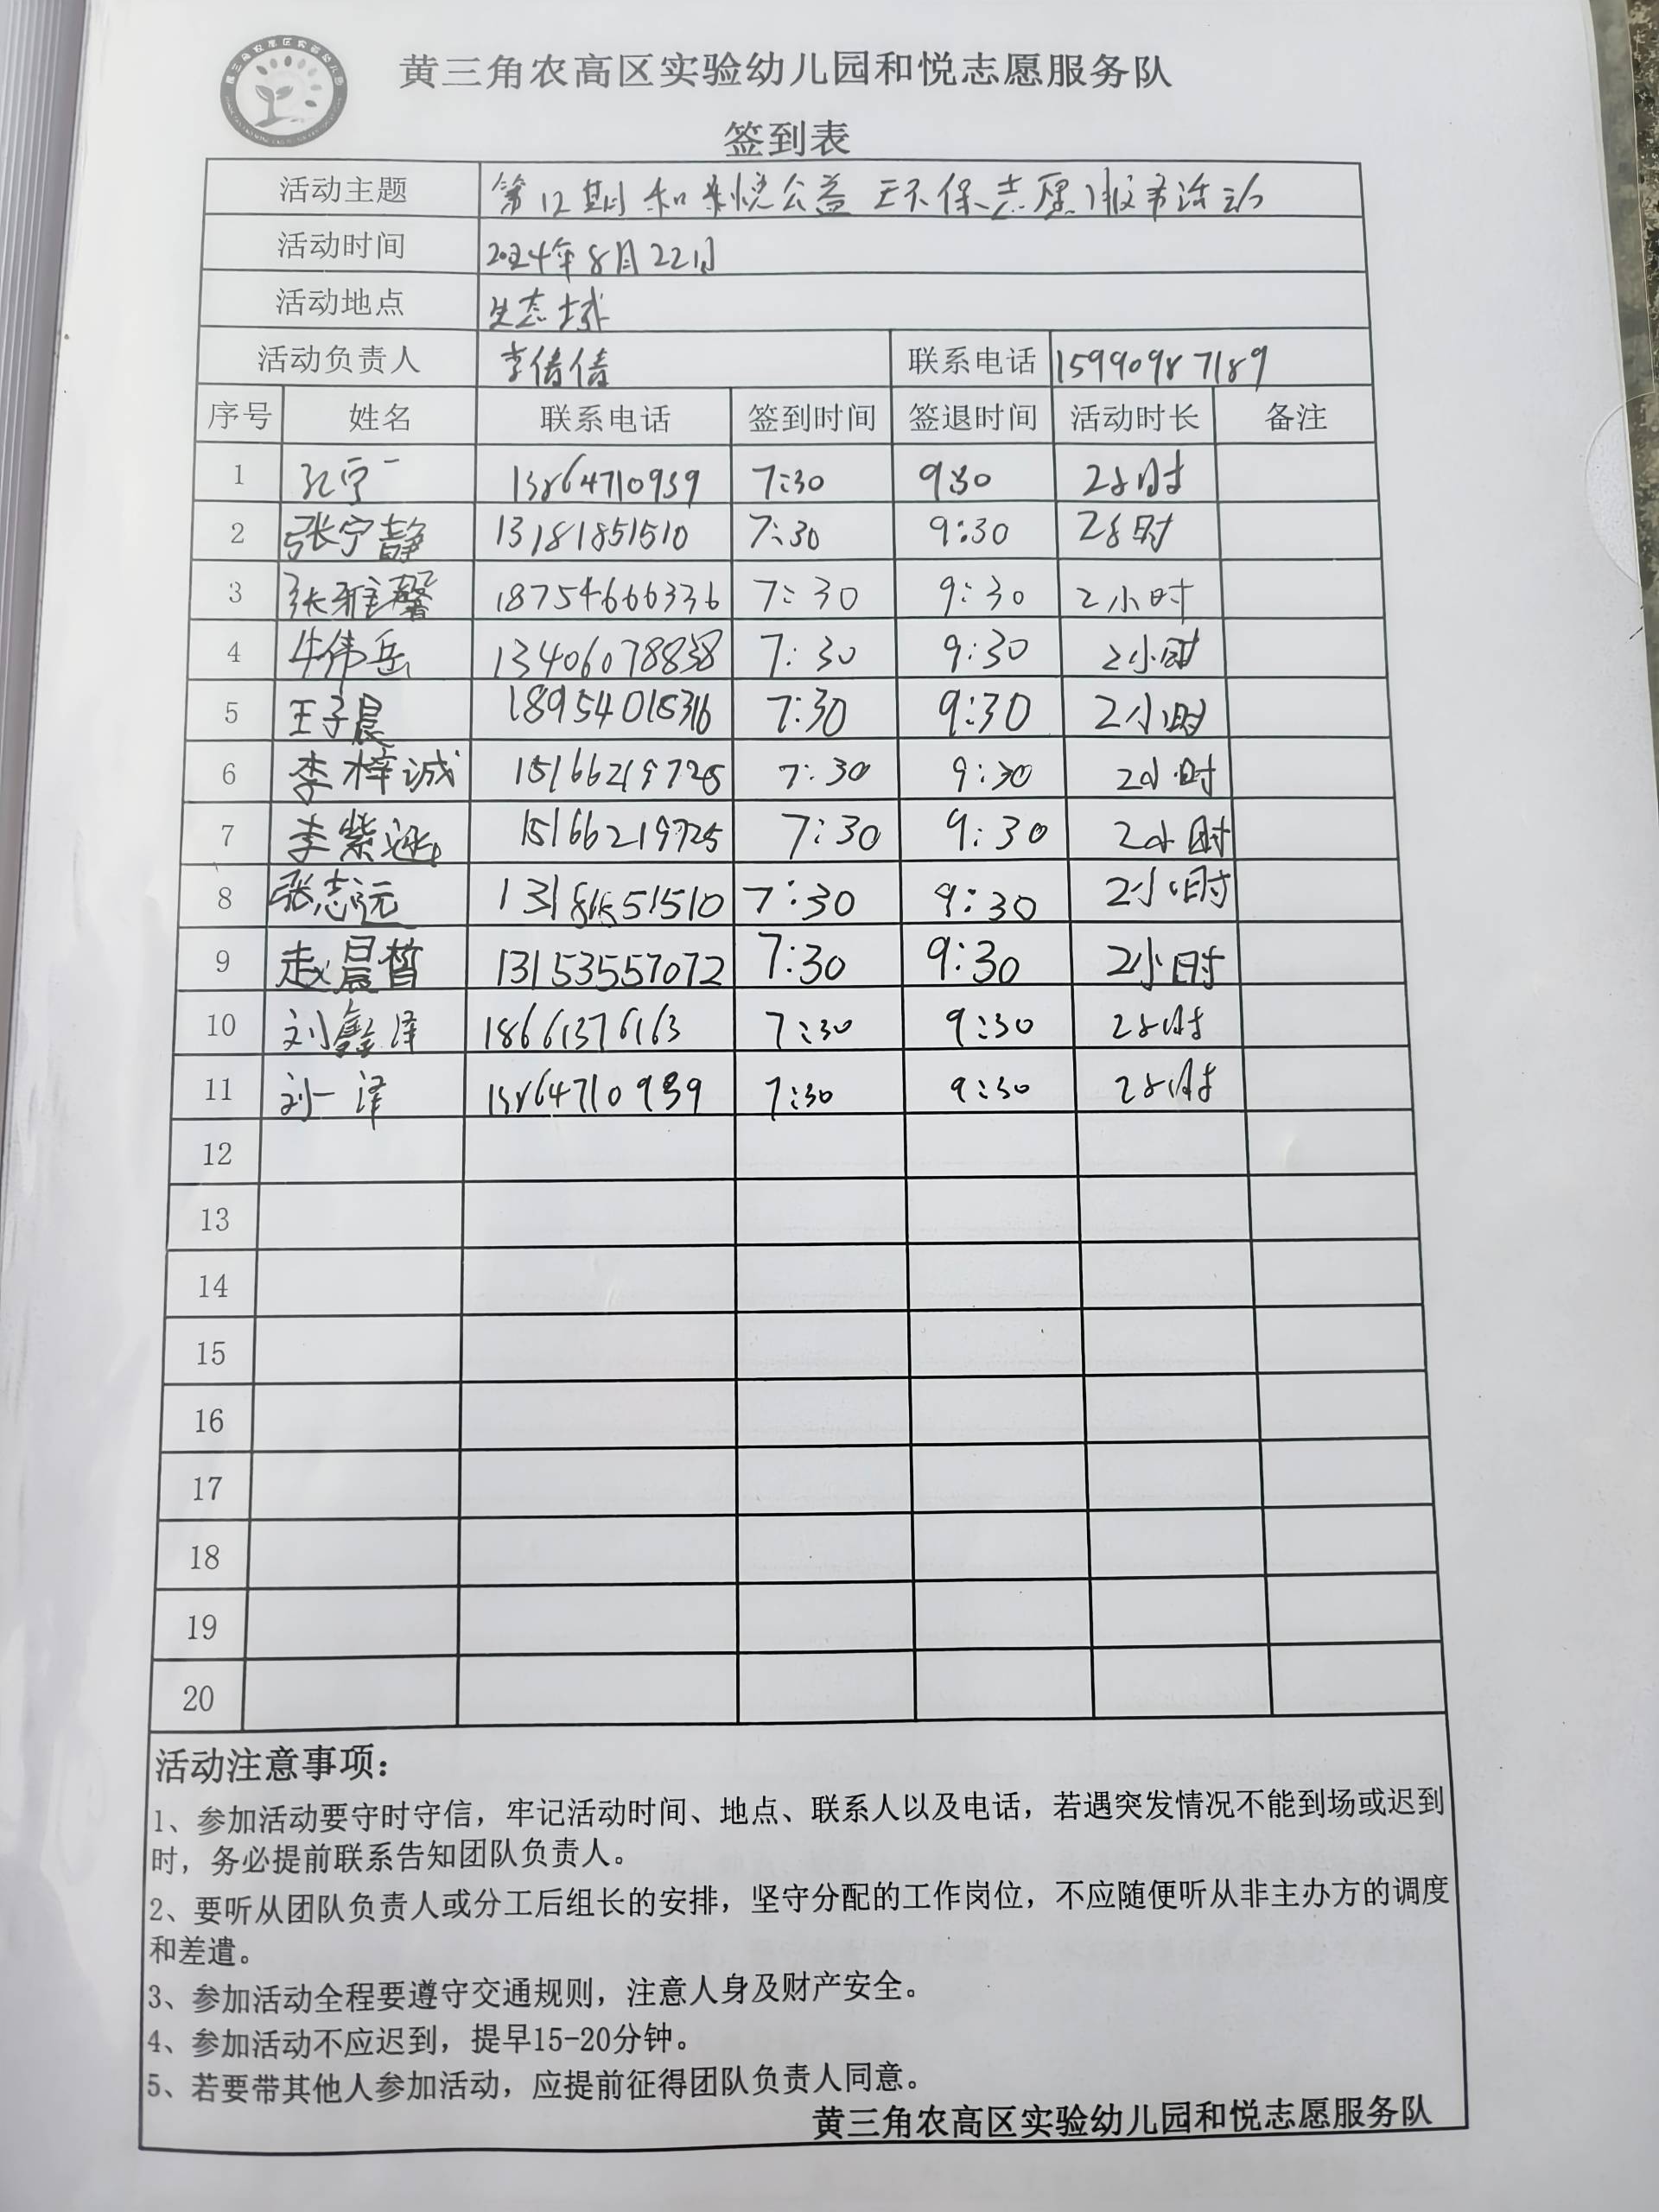 黄三角农高区实验幼儿园和悦志愿服务队
签到表
活动主题 第12期和美悦公益环保志愿服务活动
活动时间 2024年8月22日
活动地点 生态城
活动负责人 李倩倩 联系电话 15990987189
序号 姓名 联系电话 签到时间 签退时间 活动时长 备注
1 孔宁一 13864710939 7:30 9:30 2小时
2 张宁静 13181851510 7:30 9:30 2小时
3 张雅馨 18754666336 7:30 9:30 2小时
4 牛伟岳 13406078838 7:30 9:30 2小时
5 王子晨 18954018316 7:30 9:30 2小时
6 李梓诚 15166219725 7:30 9:30 2小时
7 李紫涵 15166219725 7:30 9:30 2小时
8 张志远 13181851510 7:30 9:30 2小时
9 赵晨皙 13153557072 7:30 9:30 2小时
10 刘鑫泽 18661376163 7:30 9:30 2小时
11 刘一泽 13864710939 7:30 9:30 2小时
12
13
14
15
16
17
18
19
20
活动注意事项：
1、参加活动要守时守信，牢记活动时间、地点、联系人以及电话，若遇突发情况不能到场或迟到
时，务必提前联系告知团队负责人。
2、要听从团队负责人或分工后组长的安排，坚守分配的工作岗位，不应随便听从非主办方的调度
和差遣。
3、参加活动全程要遵守交通规则，注意人身及财产安全。
4、参加活动不应迟到，提早15-20分钟。
5、若要带其他人参加活动，应提前征得团队负责人同意。
黄三角农高区实验幼儿园和悦志愿服务队